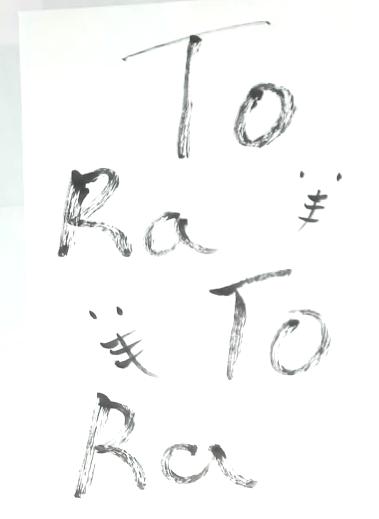 To
Ra
To
Ra